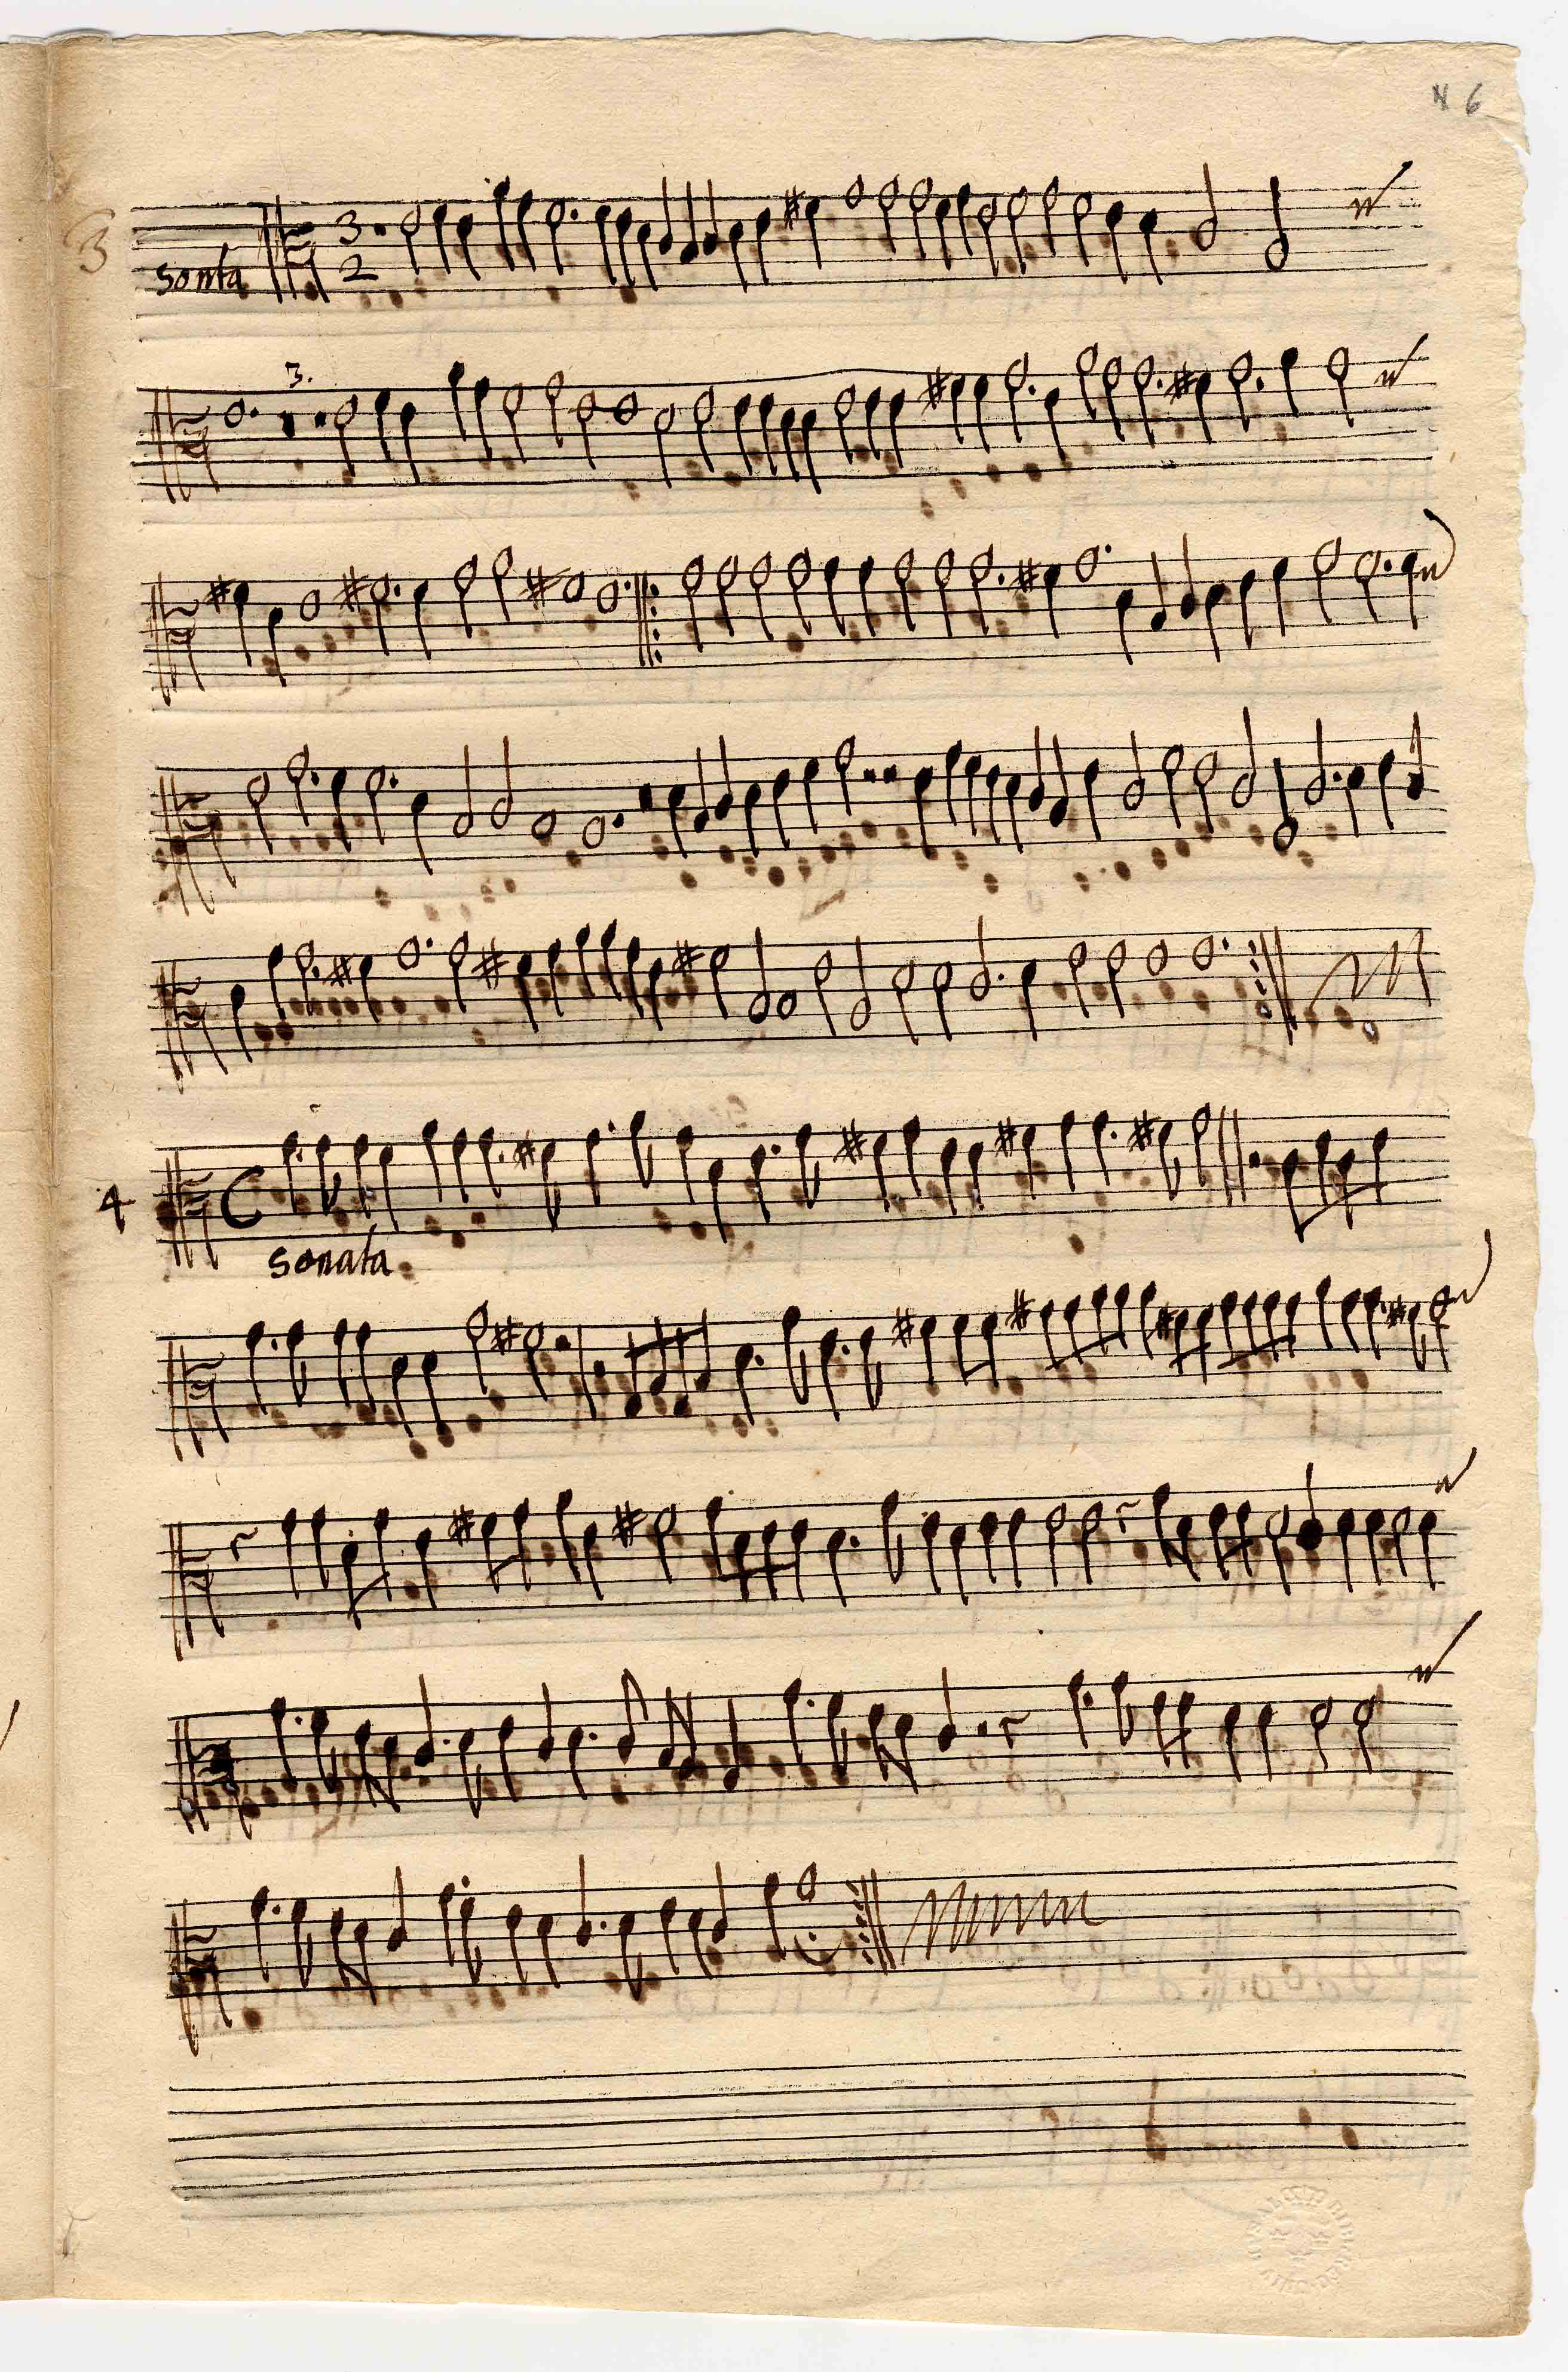 N 6
3
3
2
Sonta
3.
4
C
Sonata